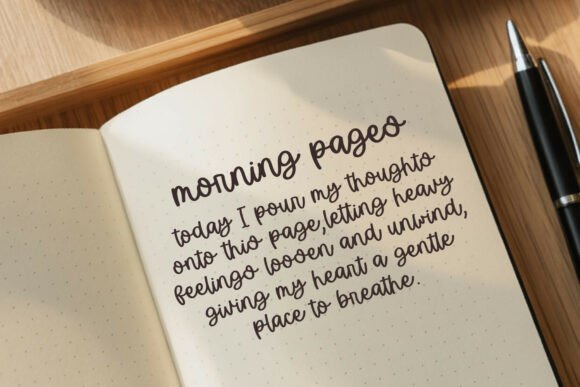 morning pages
today I pour my thoughts
onto this page,letting heavy
feelings loosen and unwind,
giving my heart a gentle
place to breathe.